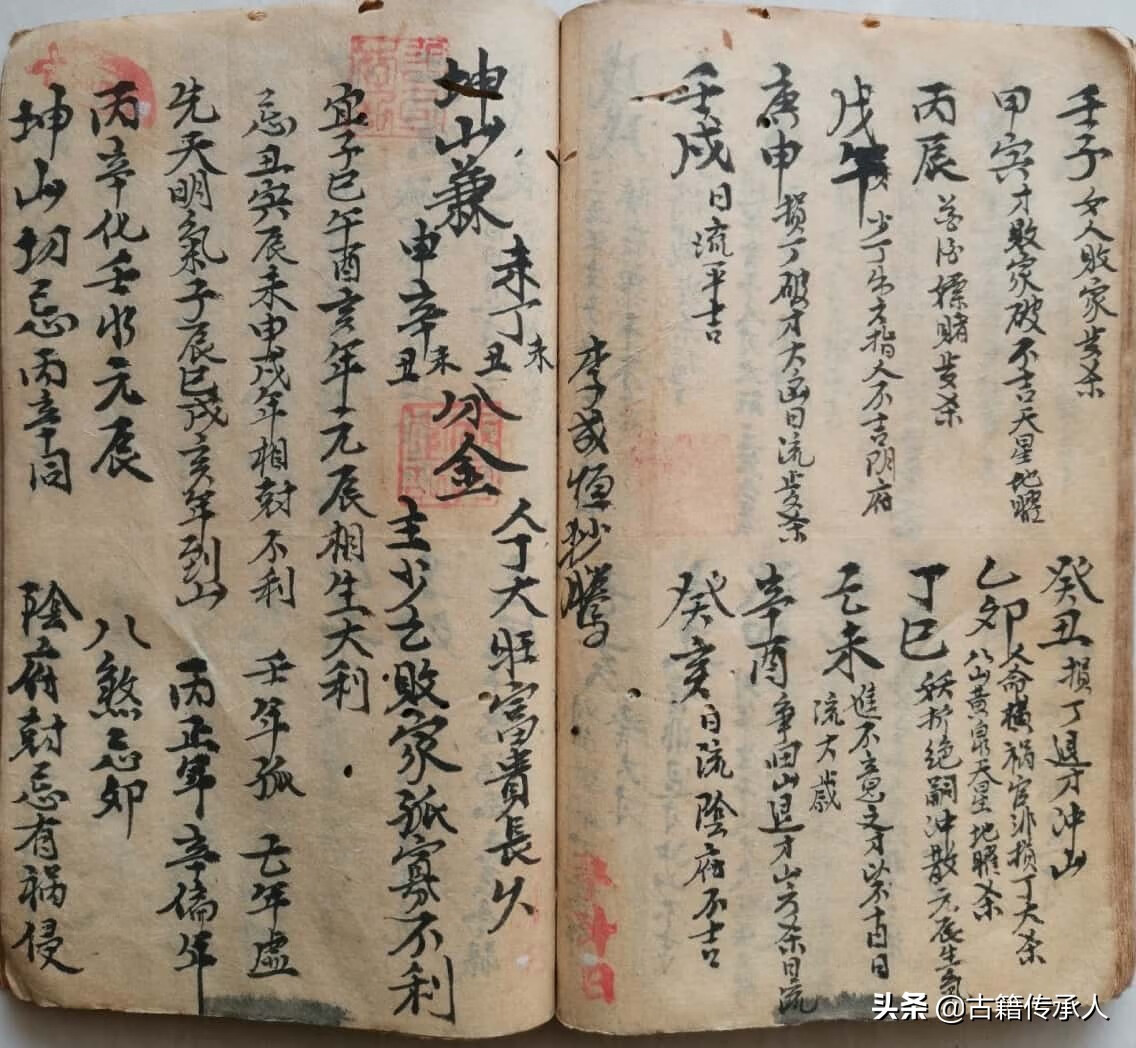 壬子 女人敗家歩杀
癸丑 損丁退才冲山
甲寅 才敗家破不吉天星地曜
乙卯 人命橫祸官非損丁大杀
八山黄泉天星地曜杀
丙辰 嫖賭歩杀
丁巳 妖折絶嗣冲散元辰生氣
戊午 少丁生六指人不吉阴府
己未 進不意之才
流太歲
庚申 損丁破才大凶日流歩杀
辛酉 争回山退才山方杀日流
壬戌 日流平吉
癸亥 日流陰府不吉
李成恒抄騰
坤山兼
未丁 未丑 分金 人丁大旺富貴長久
申辛 未丑 主少亡敗家孤寡不利
宜子巳午酉亥年元辰相生大利
忌丑寅辰未申戌年相尅不利 壬年孤 亡年虚
先天明氣子辰巳戌亥年到山 丙正年 辛偏年
丙辛化壬水元辰 八煞忌卯
坤山切忌丙辛同 陰府尅忌有祸侵
头条 @古籍传承人